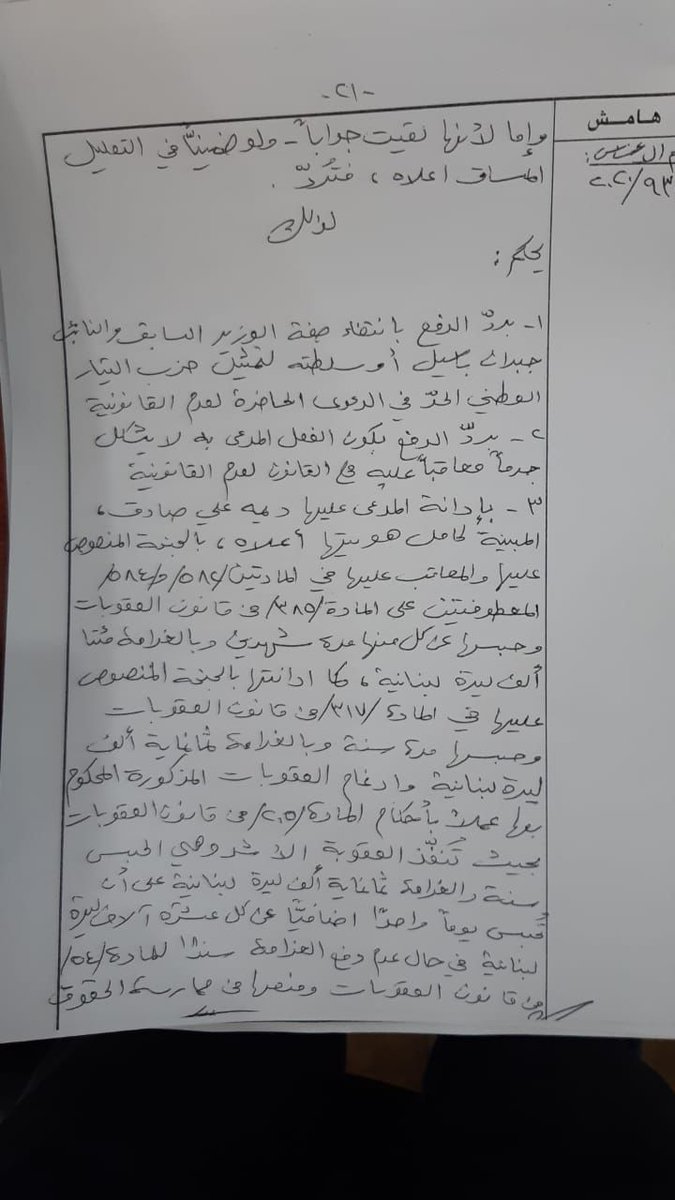 -٢١-
هامش
٢٠٢٠/٩٣
وإما لأنها لقيت جواباً - ولو ضمنياً في التعليل
المساق اعلاه ، فتُردّ .
لذلك
يحكم :
١- بردّ الدفع بانتفاء صفة الوزير السابق والنائب
جبران باسيل أو سلطته لتمثيل حزب التيار
الوطني الحرّ في الدعوى الحاضرة لعدم القانونية
٢- بردّ الدفع بكون الفعل المدعى به لا يشكل
جرماً معاقباً عليه في القانون لعدم القانونية
٣- بإدانة المدعى عليها ديمه علي صادق،
المبينة كامل هويتها أعلاه، بالجنحة المنصوص
عليها والمعاقب عليها في المادتين /٥٨٢/ و /٥٨٤/
المعطوفتين على المادة /٣٨٥/ من قانون العقوبات
وحبسها عن كل منها مدة شهرين وبالغرامة مئتا
ألف ليرة لبنانية، كما ادانتها بالجنحة المنصوص
عليها في المادة /٣١٧/ من قانون العقوبات
وحبسها مدة سنة وبالغرامة ثمانماية ألف
ليرة لبنانية وادغام العقوبات المذكورة المحكوم
بها عملاً بأحكام المادة /٢٠٥/ من قانون العقوبات
بحيث تُنفّذ العقوبة الاشد وهي الحبس
سنة والغرامة ثمانماية ألف ليرة لبنانية على أن
تُحبس يوماً واحداً اضافيّاً عن كل عشرة آلاف ليرة
لبنانية في حال عدم دفع الغرامة سنداً للمادة /٥٤/
من قانون العقوبات ومنعها من ممارسة الحقوق